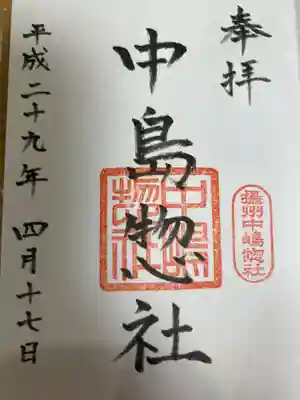 奉拝
摂州中嶋惣社
中島惣社
平成二十九年 四月十七日